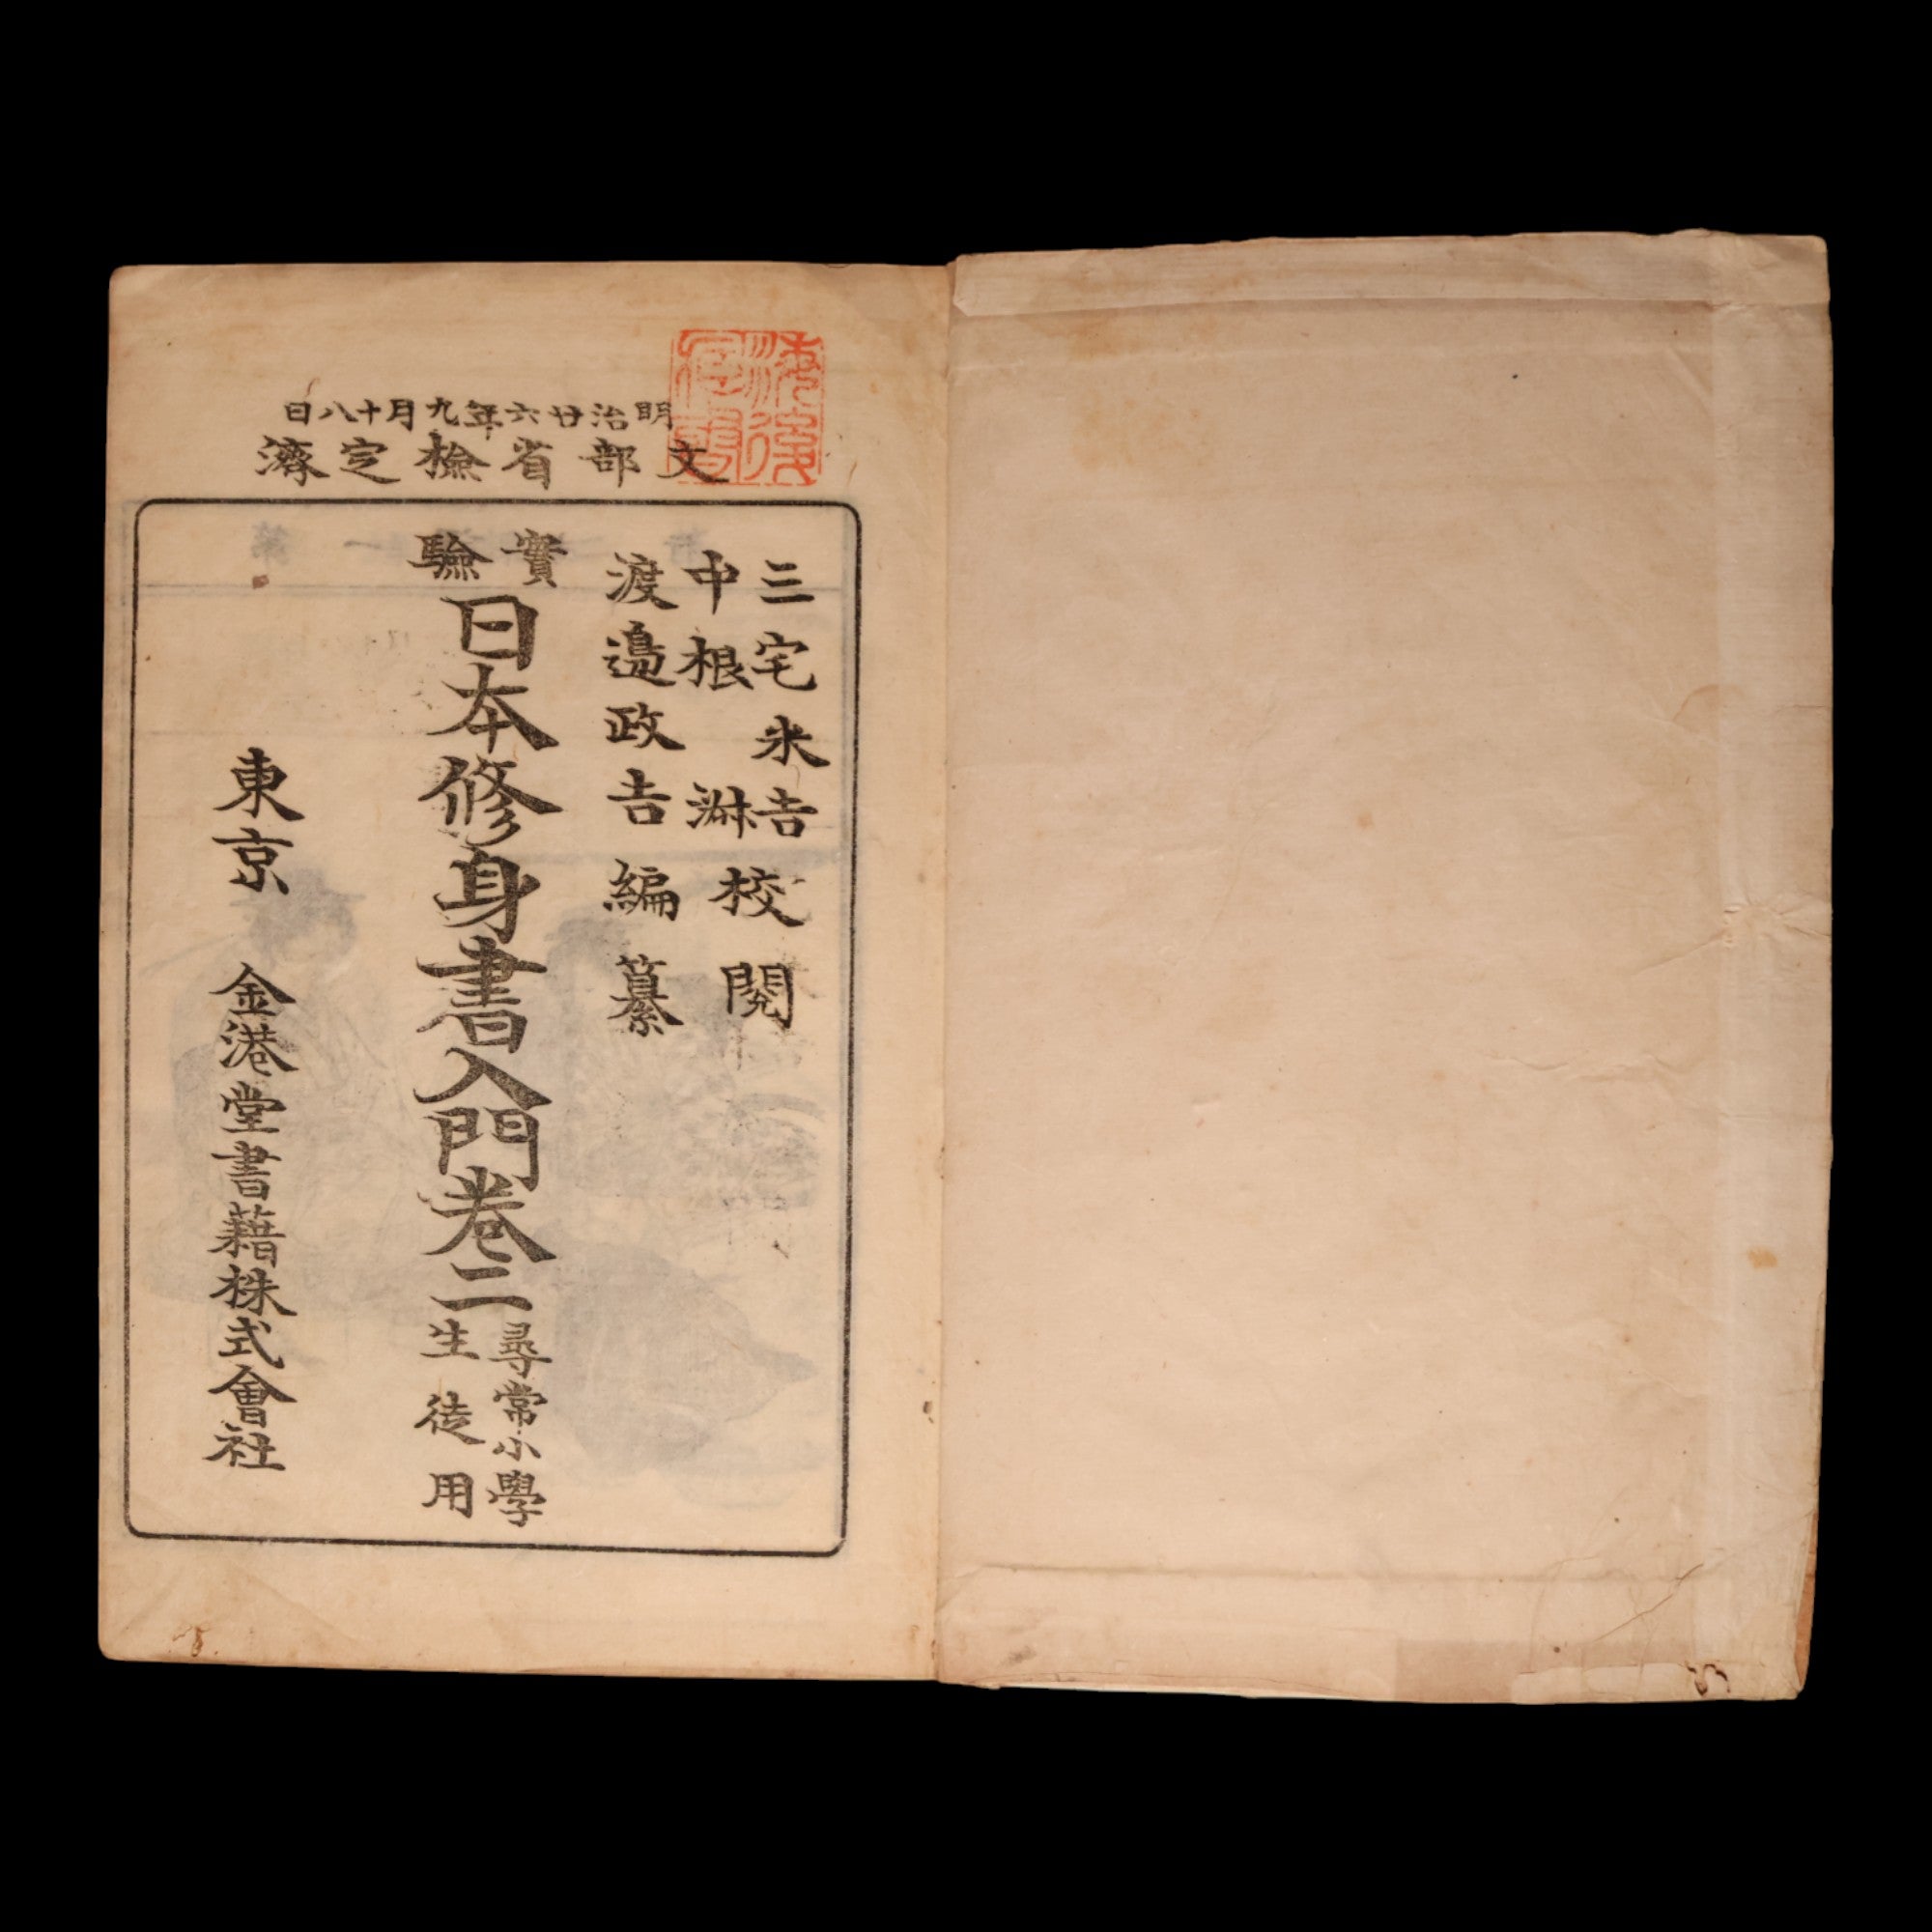 明治廿六年九月十八日
文部省檢定濟
三宅米吉
中根淑
校閱
渡邉政吉編纂
實驗
日本修身書入門卷二
尋常小學
生徒用
東京 金港堂書籍株式會社